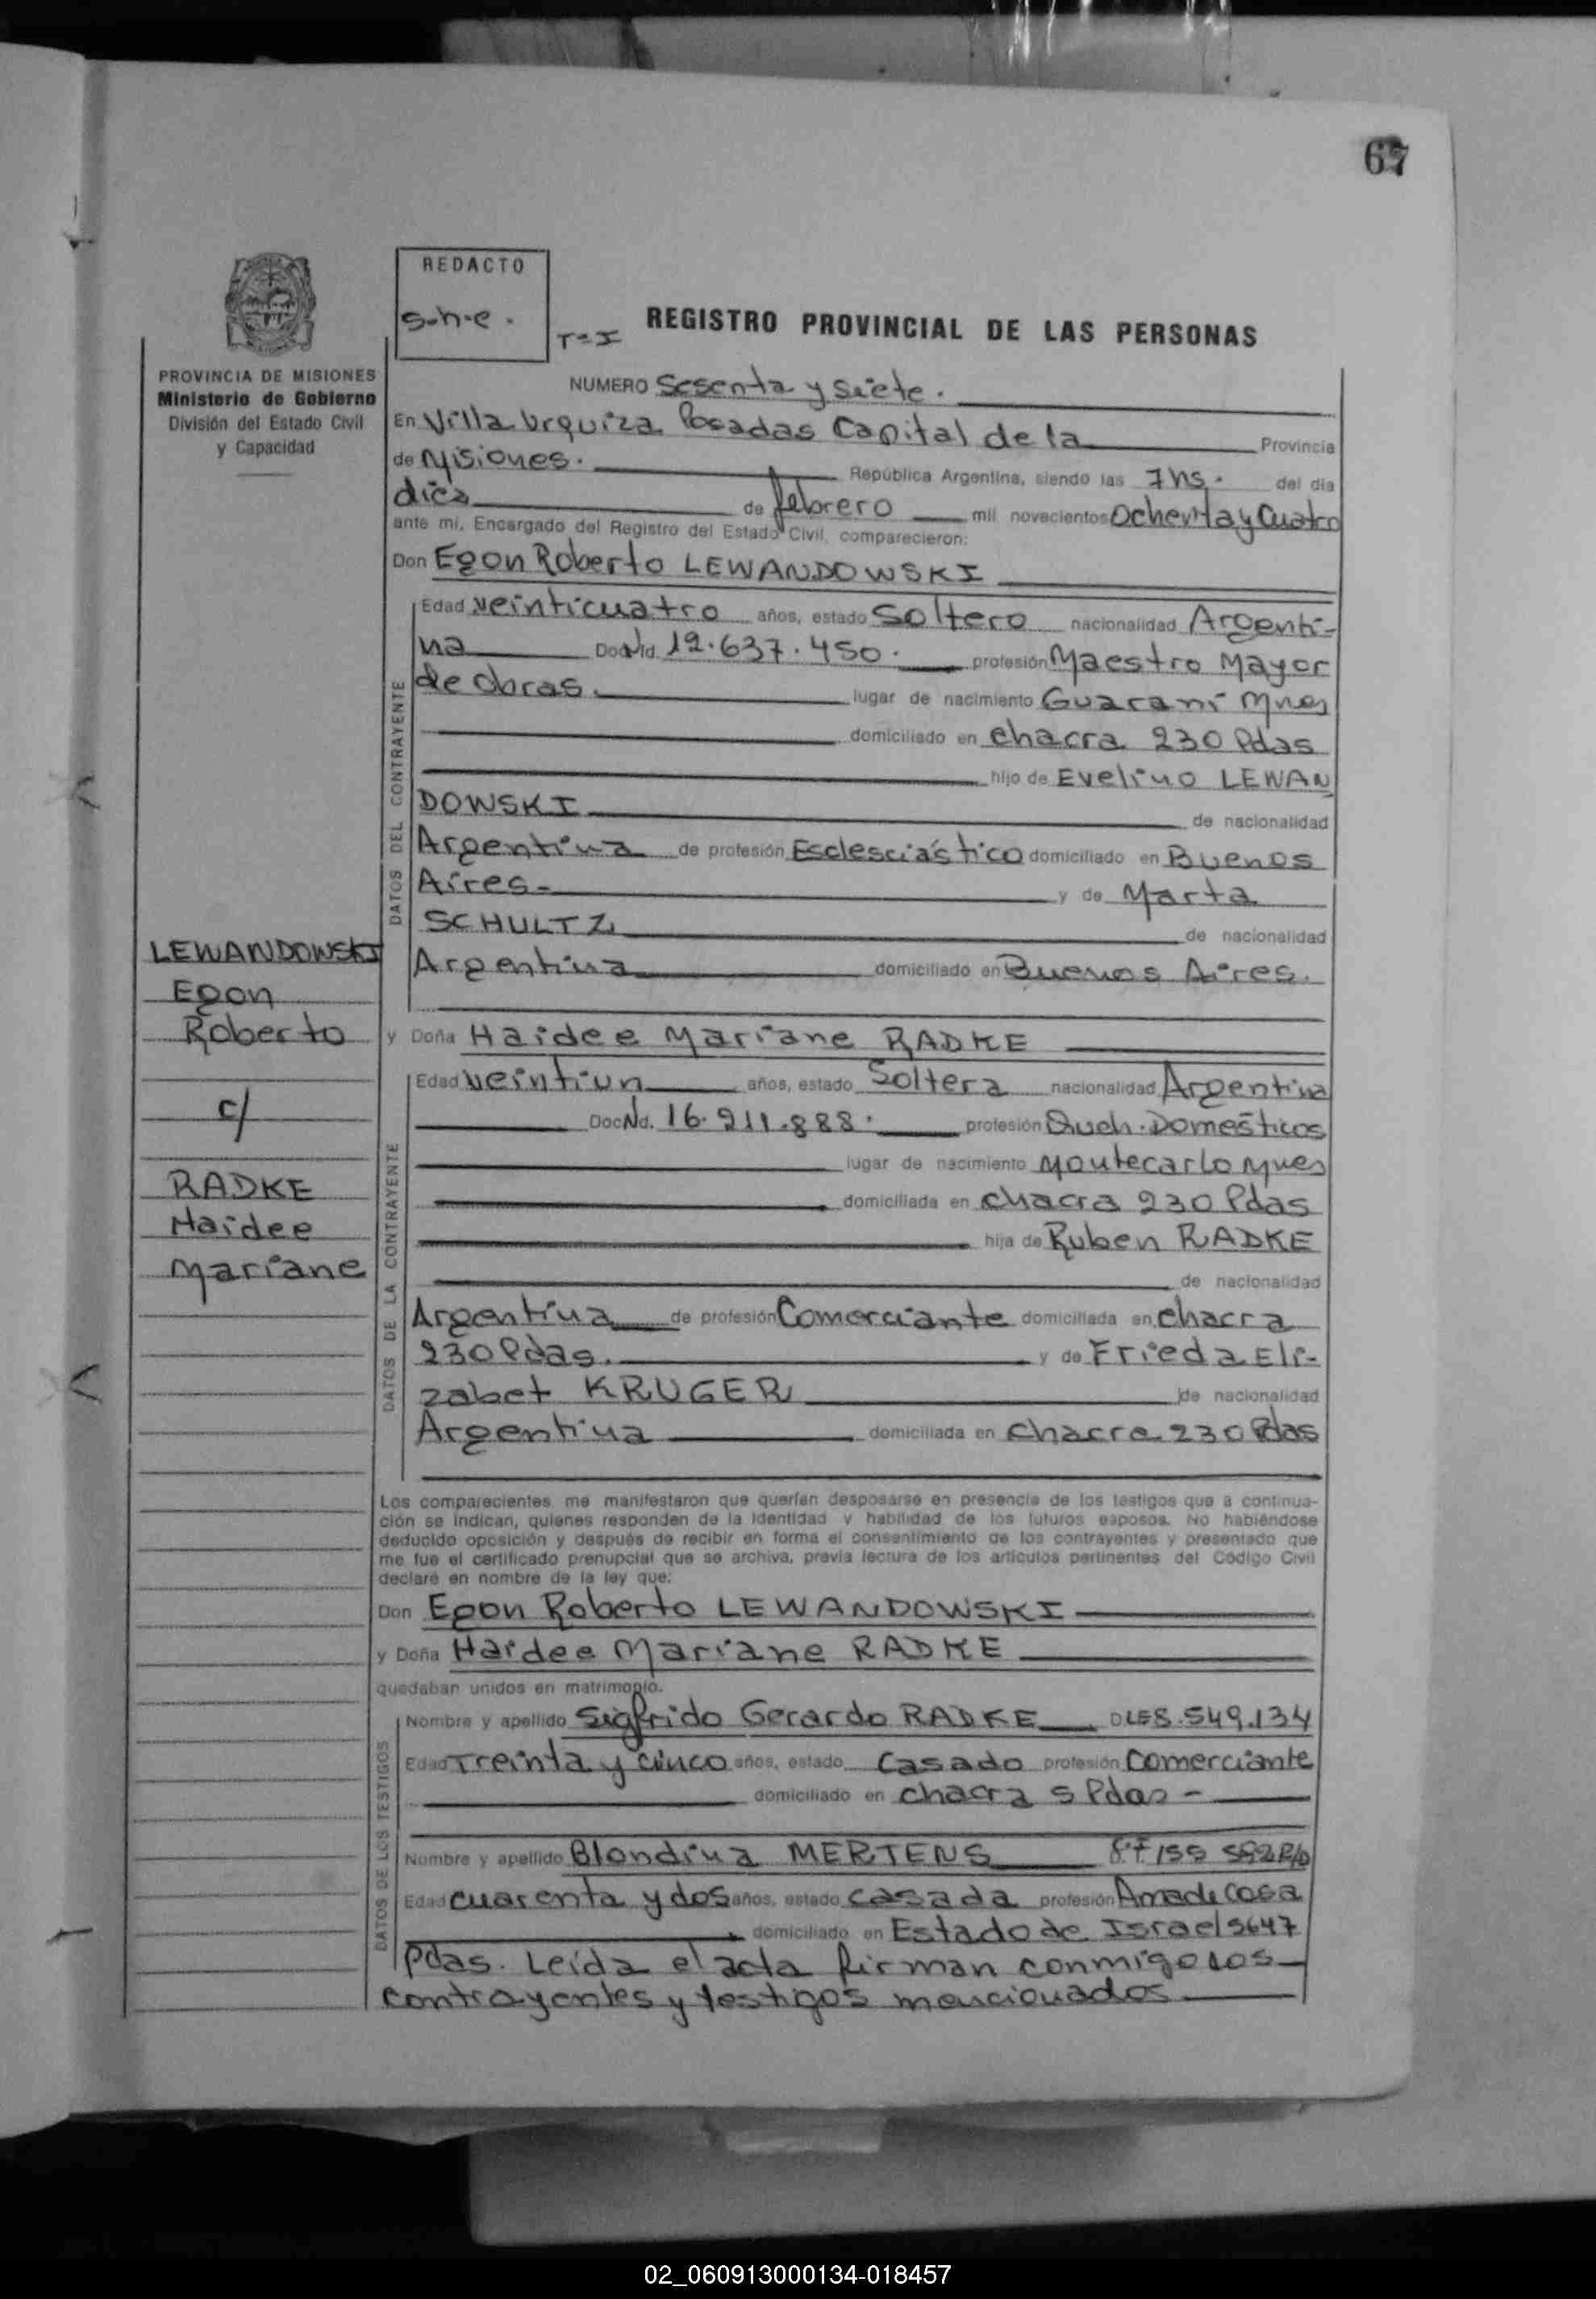 67
REDACTO
s-h-e.
T=I
REGISTRO PROVINCIAL DE LAS PERSONAS
PROVINCIA DE MISIONES
Ministerio de Gobierno
División del Estado Civil
y Capacidad
NUMERO Sesenta y siete.
En Villa Urquiza Posadas Capital de la Provincia
de Misiones. República Argentina, siendo las 7 hs. del día
diez de febrero mil novecientos Ochenta y Cuatro
ante mí, Encargado del Registro del Estado Civil, comparecieron:
Don Egon Roberto LEWANDOWSKI
DATOS DEL CONTRAYENTE
Edad veinticuatro años, estado Soltero nacionalidad Argenti-
na Doc Nd 12.637.450. profesión Maestro Mayor
de obras. lugar de nacimiento Guaraní Mnes
domiciliado en chacra 230 Pdas
hijo de Evelino LEWAN
DOWSKI de nacionalidad
Argentina de profesión Esclesciástico domiciliado en Buenos
Aires- y de Marta
SCHULTZ de nacionalidad
Argentina domiciliado en Buenos Aires.
LEWANDOWSKI
Egon
Roberto
c/
RADKE
Haidee
Mariane
y Doña Haidee Mariane RADKE
DATOS DE LA CONTRAYENTE
Edad veintiun años, estado Soltera nacionalidad Argentina
Doc Nd. 16.211.888. profesión Queh. Domésticos
lugar de nacimiento Montecarlo Mnes
domiciliada en chacra 230 Pdas
hija de Ruben RADKE
de nacionalidad
Argentina de profesión Comerciante domiciliada en chacra
230 Pdas. y de Frieda Eli-
zabet KRUGER de nacionalidad
Argentina domiciliada en chacra 230 Pdas
Los comparecientes me manifestaron que querían desposarse en presencia de los testigos que a continua-
ción se indican, quienes responden de la identidad y habilidad de los futuros esposos. No habiéndose
deducido oposición y después de recibir en forma el consentimiento de los contrayentes y presentado que
me fue el certificado prenupcial que se archiva, previa lectura de los artículos pertinentes del Código Civil
declaré en nombre de la ley que:
Don Egon Roberto LEWANDOWSKI
y Doña Haidee Mariane RADKE
quedaban unidos en matrimonio.
DATOS DE LOS TESTIGOS
Nombre y apellido Sigfrido Gerardo RADKE DLE8.549.134
Edad Treinta y cinco años, estado Casado profesión Comerciante
domiciliado en chacra 5 Pdas-
Nombre y apellido Blondina MERTENS
Edad cuarenta y dos años, estado casada profesión Ama de Casa
domiciliado en Estado de Israel 5647
Pdas. Leída el acta firman conmigo los
contrayentes y testigos mencionados
02_060913000134-018457